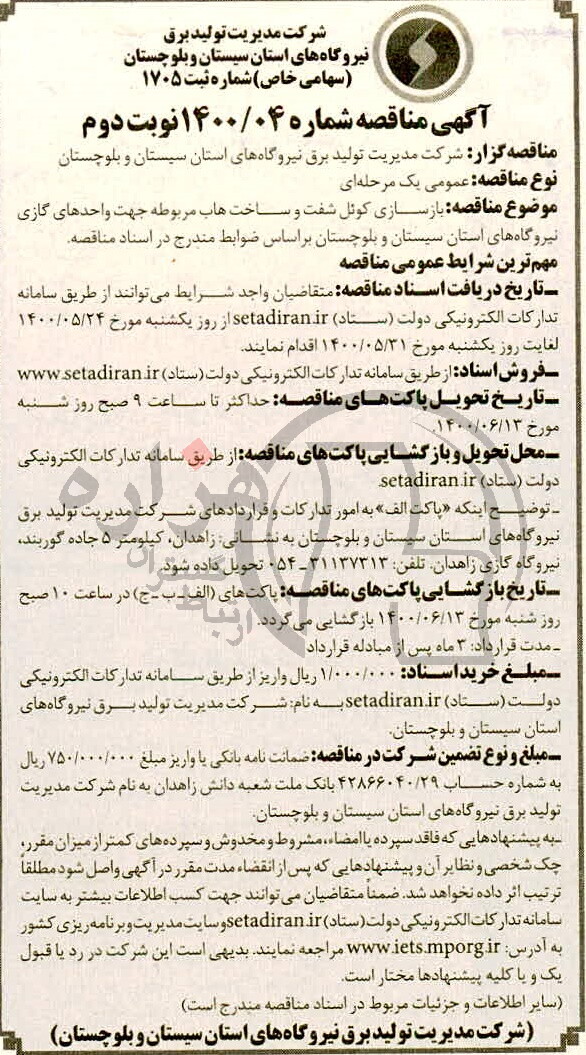 شرکت مدیریت تولید برق
نیروگاه‌های استان سیستان و بلوچستان
(سهامی خاص) شماره ثبت ۱۷۰۵
آگهی مناقصه شماره ۱۴۰۰/۰۴ نوبت دوم
مناقصه‌گزار: شرکت مدیریت تولید برق نیروگاه‌های استان سیستان و بلوچستان
نوع مناقصه: عمومی یک مرحله‌ای
موضوع مناقصه: بازسازی کوئل شفت و ساخت هاب مربوطه جهت واحدهای گازی
نیروگاه‌های استان سیستان و بلوچستان براساس ضوابط مندرج در اسناد مناقصه.
مهم‌ترین شرایط عمومی مناقصه
ـ تاریخ دریافت اسناد مناقصه: متقاضیان واجد شرایط می‌توانند از طریق سامانه
تدارکات الکترونیکی دولت (ستاد) setadiran.ir از روز یکشنبه مورخ ۱۴۰۰/۰۵/۲۴
لغایت روز یکشنبه مورخ ۱۴۰۰/۰۵/۳۱ اقدام نمایند.
ـ فروش اسناد: از طریق سامانه تدارکات الکترونیکی دولت (ستاد) www.setadiran.ir
ـ تاریخ تحویل پاکت‌های مناقصه: حداکثر تا ساعت ۹ صبح روز شنبه
مورخ ۱۴۰۰/۰۶/۱۳.
ـ محل تحویل و بازگشایی پاکت‌های مناقصه: از طریق سامانه تدارکات الکترونیکی
دولت (ستاد) setadiran.ir.
ـ توضیح اینکه «پاکت الف» به امور تدارکات و قراردادهای شرکت مدیریت تولید برق
نیروگاه‌های استان سیستان و بلوچستان به نشانی: زاهدان، کیلومتر ۵ جاده گوربند،
نیروگاه گازی زاهدان. تلفن: ۳۱۱۳۷۳۱۳ ـ ۰۵۴ تحویل داده شود.
ـ تاریخ بازگشایی پاکت‌های مناقصه: پاکت‌های (الف ـ ب ـ ج) در ساعت ۱۰ صبح
روز شنبه مورخ ۱۴۰۰/۰۶/۱۳ بازگشایی می‌گردد.
ـ مدت قرارداد: ۳ ماه پس از مبادله قرارداد
ـ مبلغ خرید اسناد: ۱/۰۰۰/۰۰۰ ریال واریز از طریق سامانه تدارکات الکترونیکی
دولت (ستاد) setadiran.ir به نام: شرکت مدیریت تولید برق نیروگاه‌های
استان سیستان و بلوچستان.
ـ مبلغ و نوع تضمین شرکت در مناقصه: ضمانت نامه بانکی یا واریز مبلغ ۷۵۰/۰۰۰/۰۰۰ ریال
به شماره حساب ۴۲۸۶۶۰۴۰/۲۹ بانک ملت شعبه دانش زاهدان به نام شرکت مدیریت
تولید برق نیروگاه‌های استان سیستان و بلوچستان.
ـ به پیشنهادهایی که فاقد سپرده یا امضاء، مشروط و مخدوش و سپرده‌های کمتر از میزان مقرر،
چک شخصی و نظایر آن و پیشنهادهایی که پس از انقضاء مدت مقرر در آگهی واصل شود مطلقاً
ترتیب اثر داده نخواهد شد. ضمناً متقاضیان می‌توانند جهت کسب اطلاعات بیشتر به سایت
سامانه تدارکات الکترونیکی دولت (ستاد) setadiran.ir و سایت مدیریت و برنامه‌ریزی کشور
به آدرس: www.iets.mporg.ir مراجعه نمایند. بدیهی است این شرکت در رد یا قبول
یک و یا کلیه پیشنهادها مختار است.
(سایر اطلاعات و جزئیات مربوط در اسناد مناقصه مندرج است)
(شرکت مدیریت تولید برق نیروگاه‌های استان سیستان و بلوچستان)